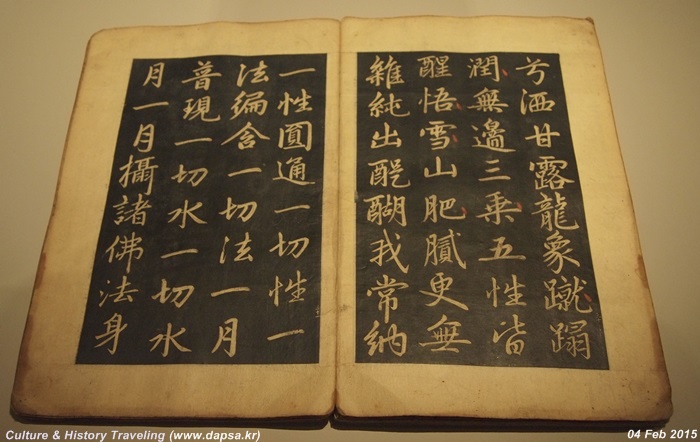 兮洒甘露龍象蹴蹋
潤無邊三乗五性皆
醒悟雪山肥膩更無
雜純出醍醐我常納
一性圓通一切性一
法徧含一切法一月
普現一切水一切水
月一月攝諸佛法身
Culture & History Traveling (www.dapsa.kr)
04 Feb 2015